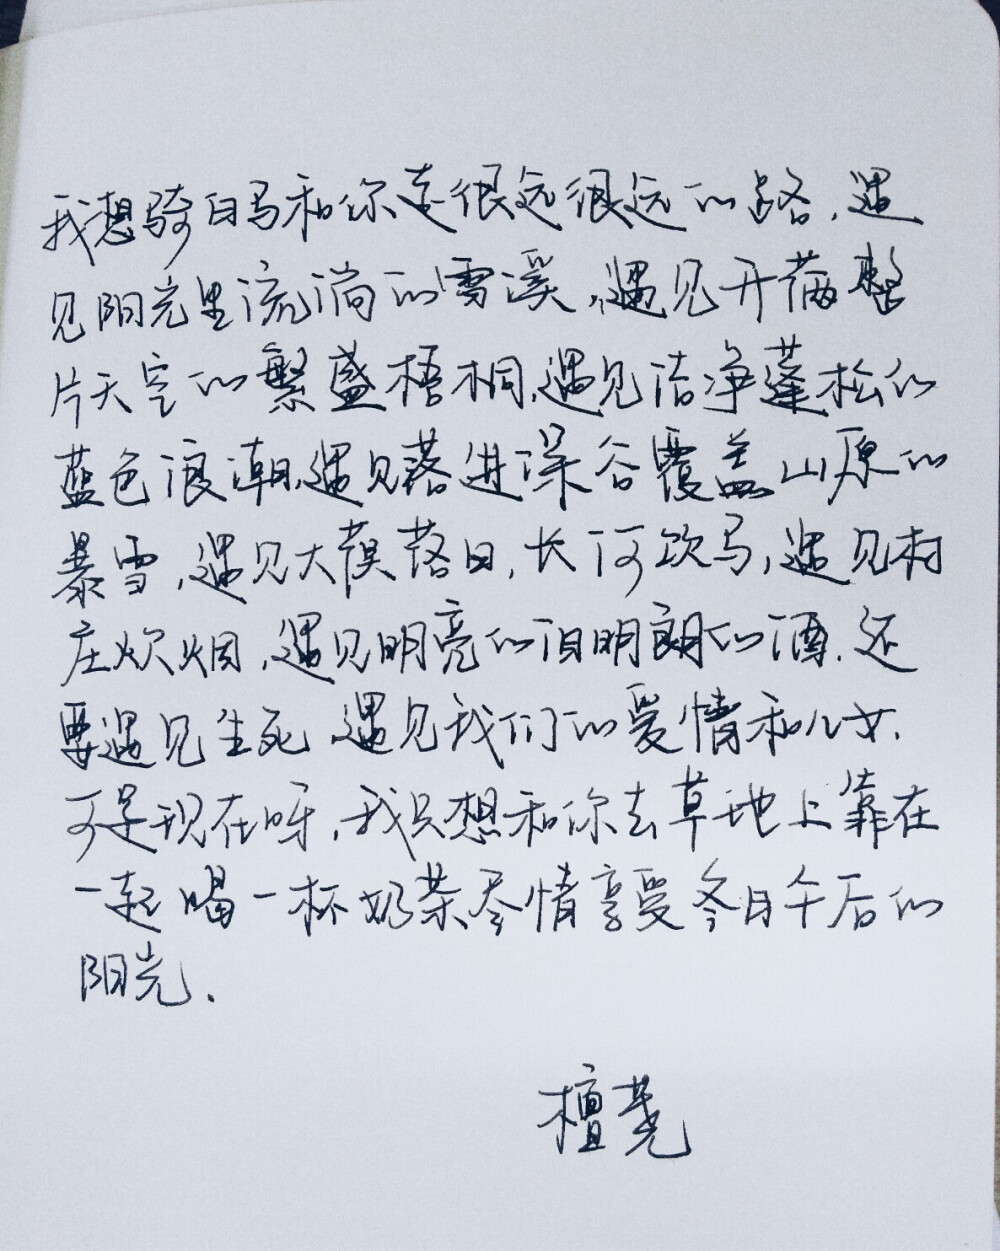 我想骑白马和你走很远很远的路，遇
见阳光里流淌的雪溪，遇见开满整
片天空的繁盛梧桐，遇见洁净蓬松的
蓝色浪潮，遇见落进深谷覆盖山原的
暴雪，遇见大漠落日，长河饮马，遇见村
庄炊烟，遇见明亮的泪明朗的酒，还
要遇见生死 遇见我们的爱情和儿女，
可是现在呀，我只想和你去草地上靠在
一起喝一杯奶茶尽情享受冬日午后的
阳光.
檀尧